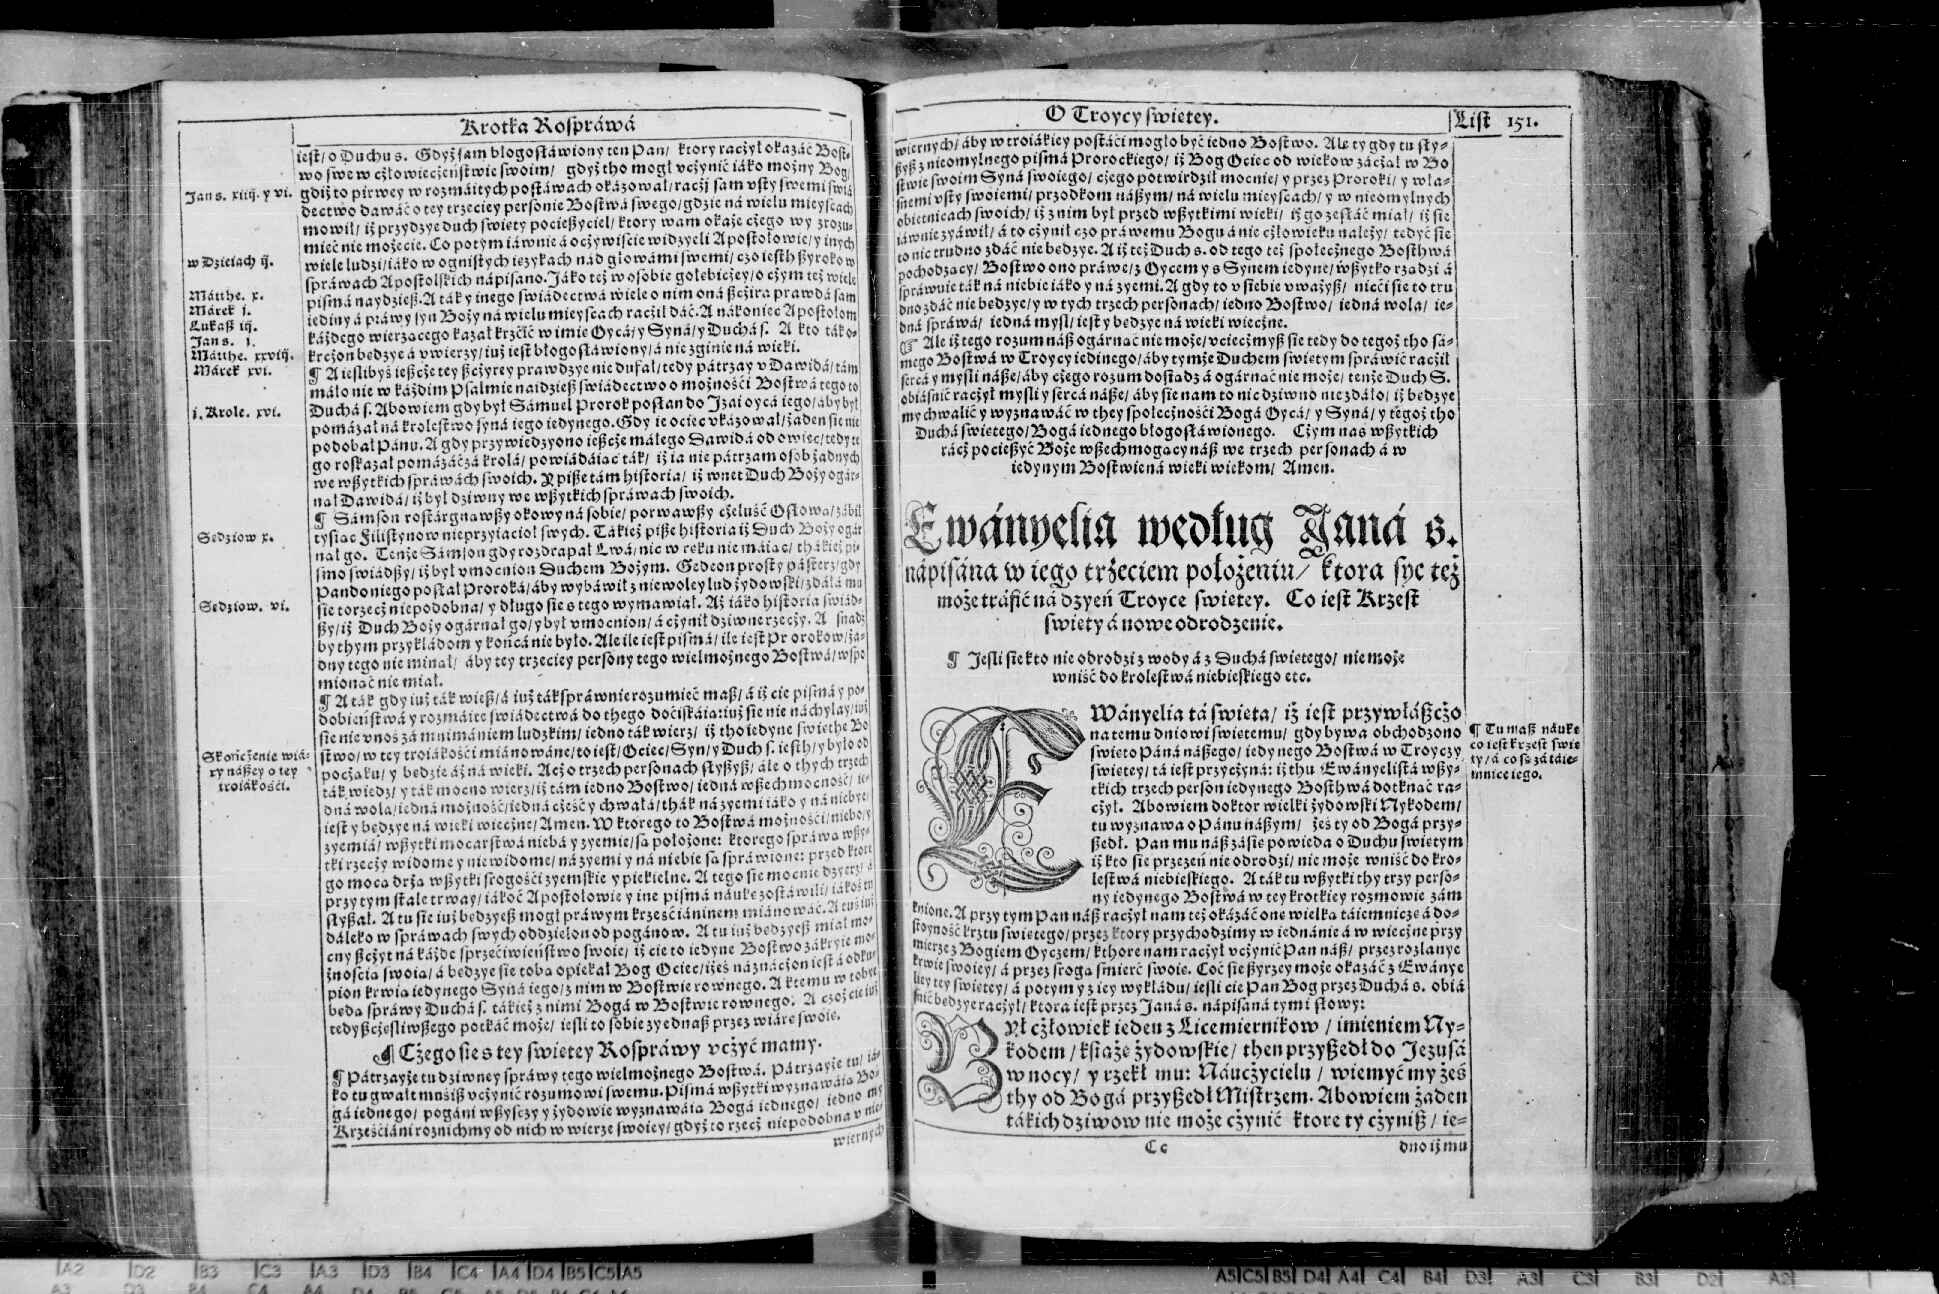 Krotka Rospráwá
iest/ o Duchu s. Gdyż sam błogosłáwiony ten Pan/ ktory racżył okázáć Bost-
wo swe w cżłowiecżeństwie swoim/ gdyż tho mogł vcżynić iáko możny Bog/
Jan s. xiiij. y vi.
gdiż to pirwey w rozmáitych postáwach okázował/ racżij sam vsty swemi swiá
dectwo dáwáć o tey trzeciey personie Bostwá swego/ gdzie ná wielu mieyscách
mowił/ iż przydzye duch swięty pocieszyciel/ ktory wam okaże cżego wy zrozu-
mieć nie możecie. Co potym iáwnie á ocżywiście widzyeli Apostołowie/ y inych
w Dzieiach ij.
wiele ludzi/ iáko w ognistych ięzykach nád głowámi swemi/ czo iesth szyroko w
spráwach Apostolskich nápisano. Jáko też w osobie gołębicżey/ o cżym też wiele
Mátthe. x.
pismá naydziesz. A ták y inego swiádectwá wiele o nim oná szcżira prawdá sam
Márek i.
iediny á práwy syn Boży ná wielu mieyscach racżił dáć. A nákoniec Apostołom
Lukasz iij.
káżdego wierzącego kazał krzcić w imię Oycá/ y Syná/ y Duchá s. A kto táko-
Jan s. i.
Mátthe. xxviij.
krzcżon będzye á vwierzy/ iuż iest błogosłáwiony/ á nie zginie ná wieki.
Márek xvi.
¶ A ieslibyś ieszcże tey szcżyrey prawdzye nie dufał/ tedy pátrzay v Dawidá/ tám
máło nie w káżdim Psalmie naidziesz swiádectwo o możności Bostwá tego to
i. Krole. xvi.
Duchá s. Abowiem gdy był Sámuel Prorok posłan do Jzái oycá iego/ áby był
pomázał ná krolestwo syná iego iedynego. Gdy ie ociec vkázował/ żaden sie nie
podobał Pánu. A gdy przywiedzyono ieszcże máłego Dawidá od owiec/ tedy te
go roskazał pomázáć zá krolá/ powiádáiąc ták/ iż ia nie pátrzam osob żadnych
we wszytkich spráwach swoich. Y pisze tám historia/ iż wnet Duch Boży ogár-
nął Dawidá/ iż był dziwny we wszytkich spráwach swoich.
¶ Sámson rostárgnąwszy okowy ná sobie/ porwawszy cżeluść Osłową/ zábił
Sędziow x.
tysiąc Filistynow nieprzyiacioł swych. Tákież pisze historia iż Duch Boży ogár
nął go. Tenże Sámson gdy rozdrapał Lwá/ nic w ręku nie máiąc/ thákież pi-
smo swiádszy/ iż był vmocnion Duchem Bożym. Gedeon prosty pásterz/ gdy
Pan do niego posłał Proroká/ áby wybáwił z niewoley lud żydowski/ zdáłá mu
Sędziow. vi.
sie to rzecż niepodobna/ y długo sie s tego wymawiał. Aż iáko historia swiád-
szy/ iż Duch Boży ogárnął go/ y był vmocnion/ á cżynił dziwne rzecży. A snadź
by thym przykłádom y końcá nie było. Ale ile iest pismá/ ile iest Prorokow/ ża-
dny tego nie minął/ áby tey trzeciey persony tego wielmożnego Bostwá/ wspo
mionąć nie miał.
¶ A ták gdy iuż ták wiesz/ á iuż ták spráwnie rozumieć masz/ á iż cie pismá y po-
dobieństwá y rozmáite swiádectwá do thego dociskáią: iuż sie nie náchylay/ iuż
sie nie vnoś zá mnimániem ludzkim/ iedno ták wierz/ iż tho iedyne swięthe Bo
Skończenie wiá-
ry nászey o tey
troiákości.
stwo/ w tey troiákości miánowáne/ to iest/ Ociec/ Syn/ y Duch s. iesth/ y było od
pocżąku/ y będzie áż ná wieki. Acż o trzech personach słyszysz/ ále o thych trzech
ták wiedz/ y ták mocno wierz/ iż tám iedno Bostwo/ iedná wszechmocność/ ie-
dná wola/ iedná możność/ iedná cżeść y chwałá/ thák ná zyemi iáko y ná niebie/
iest y będzye ná wieki wiecżne/ Amen. W ktorego to Bostwá możności/ niebo/ y
zyemiá/ wszytki mocarstwá niebá y zyemie/ są położone: ktorego spráwą wszy-
tki rzecży widome y niewidome/ ná zyemi y ná niebie są spráwione: przed ktore
go mocą drżą wszytki srogości zyemskie y piekielne. A tego sie mocnie dzyerż/ á
przy tym stale trway/ iákoć Apostołowie y ine pismá náukę zostáwili/ iákoś tu
słyszał. A tu sie iuż będzyesz mogł práwym krześciáninem miánowáć. A tuś iuż
dáleko w spráwach swych oddzielon od pogánow. A tu iuż będzyesz miał mo-
cny szcżyt ná káżde sprzeciwieństwo swoie/ iż cie to iedyne Bostwo zákryie mo-
żnością swoią/ á będzye sie tobą opiekał Bog Ociec/ iżeś náznácżon iest á odku-
pion krwią iedynego Syná iego/ z nim w Bostwie rownego. A k temu w tobye
będą spráwy Duchá s. tákież z nimi Bogá w Bostwie rownego. A czoż cie iuż
tedy szcżesliwszego potkáć może/ iesli to sobie zyednasz przez wiárę swoię.
¶ Cżego sie s tey swiętey Rospráwy vcżyć mamy.
¶ Pátrzayże tu dziwney spráwy tego wielmożnego Bostwá. Pátrzayże tu/ iá-
ko tu gwałt musisz vcżynić rozumowi swemu. Pismá wszytki wyznawáią Bo-
gá iednego/ pogáni wszyscy y żydowie wyznawáią Bogá iednego/ iedno my
Krześciáni roznichmy od nich w wierze swoiey/ gdyż to rzecż niepodobna v nie-
wiernych
O Troycy swiętey.
List 151.
wiernych/ áby w troiákiey postáci mogło być iedno Bostwo. Ale ty gdy tu sły-
szysz z nieomylnego pismá Prorockiego/ iż Bog Ociec od wiekow zácżął w Bo
stwie swoim Syná swoiego/ cżego potwirdził mocnie/ y przez Proroki/ y wła-
snemi vsty swoiemi/ przodkom nászym/ ná wielu mieyscach/ y w nieomylnych
obietnicach swoich/ iż z nim był przed wszytkimi wieki/ iż go zesłáć miał/ iż sie
iáwnie zyáwił/ á to cżynił czo práwemu Bogu á nie cżłowieku należy/ tedyć sie
to nic trudno zdáć nie będzye. A iż też Duch s. od tego też społecżnego Bosthwá
pochodzący/ Bostwo ono práwe/ z Oycem y s Synem iedyne/ wszytko rządzi á
spráwuie ták ná niebie iáko y ná zyemi. A gdy to v siebie vważysz/ nieći sie to tru
dno zdáć nie będzye/ y w tych trzech personach/ iedno Bostwo/ iedná wola/ ie-
dná spráwá/ iedná mysl/ iest y będzye ná wieki wiecżne.
¶ Ale iż tego rozum nász ogárnąć nie może/ vciecżmysz sie tedy do tegoż tho sá-
mego Bostwá w Troycy iedinego/ áby tymże Duchem swiętym spráwić racżił
sercá y mysli násze/ áby cżego rozum dostádz á ogárnąć nie może/ tenże Duch S.
obiáśnić racżył mysli y sercá násze/ áby sie nam to nic dziwno nie zdáło/ iż będzye
my chwalić y wyznawáć w they społecżności Bogá Oycá/ y Syná/ y tegoż tho
Duchá swiętego/ Bogá iednego błogosłáwionego. Cżym nas wszytkich
rácż pocieszyć Boże wszechmogący nász we trzech personach á w
iedynym Bostwie ná wieki wiekom/ Amen.
Ewányelia według Janá s.
nápisána w iego trzeciem położeniu/ ktora syę też
może tráfić ná dzyeń Troyce swiętey. Co iest Krzest
swięty á nowe odrodzenie.
¶ Jesli sie kto nie odrodzi z wody á z Duchá swiętego/ nie może
wniść do krolestwá niebieskiego etc.
EWányelia tá swięta/ iż iest przywłászcżo
na temu dniowi swiętemu/ gdy bywa obchodzono
swięto Páná nászego/ iedynego Bostwá w Troyczy
swiętey/ tá iest przycżyná: iż thu Ewányelistá wszy-
tkich trzech person iedynego Bosthwá dotknąć ra-
cżył. Abowiem doktor wielki żydowski Nykodem/
tu wyznawa o Pánu nászym/ żeś ty od Bogá przy-
szedł. Pan mu nász zásię powieda o Duchu swiętym
iż kto sie przezeń nie odrodzi/ nie może wniść do kro-
lestwá niebieskiego. A ták tu wszytki thy trzy perso-
ny iedynego Bostwá w tey krotkiey rozmowie zám
knione. A przy tym Pan nász racżył nam też okázáć one wielką táiemnicę á do-
stoyność krztu swiętego/ przez ktory przychodzimy w iednánie á w wiecżne przy
mierze z Bogiem Oyczem/ kthore nam racżył vcżynić Pan nász/ przez rozlanye
krwie swoiey/ á przez srogą śmierć swoię. Coć sie szyrzey może okázáć z Ewánye
liey tey swiętey/ á potym y z iey wykłádu/ iesli cie Pan Bog przez Duchá s. obiá
śnić będzye racżył/ ktora iest przez Janá s. nápisaná tymi słowy:
¶ Tu masz náukę
co iest krzest swię
ty/ á co są zá táie-
mnice iego.
BYł cżłowiek ieden z Licemiernikow/ imieniem Ny-
kodem/ książę żydowskie/ then przyszedł do Jezusá
w nocy/ y rzekł mu: Náucżycielu/ wiemyć my żeś
thy od Bogá przyszedł Mistrzem. Abowiem żaden
tákich dziwow nie może cżynić ktore ty cżynisz/ ie-
Cc
dno iż mu
A2 D2 B3 C3 A3 D3 B4 C4 A4 D4 B5 C5 A5
A5 C5 B5 D4 A4 C4 B4 D3 A3 C3 B3 D2 A2